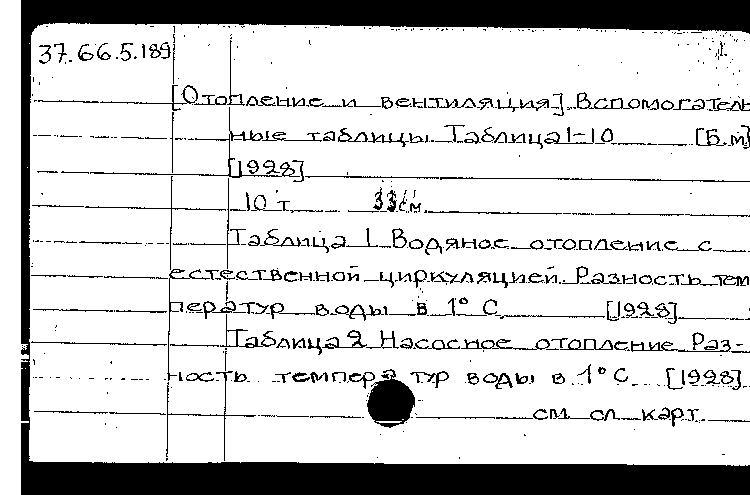 37.66.5.189
[Отопление и вентиляция] Вспомогатель
ные таблицы. Таблица 1-10 [Б.м]
[1928]
10 т. 33см.
Таблица 1. Водяное отопление с
естественной циркуляцией. Разность тем
ператур воды в 1° С. [1928].
Таблица 2. Насосное отопление. Раз-
ность температур воды в 1° С. [1928]
см. сл. карт.